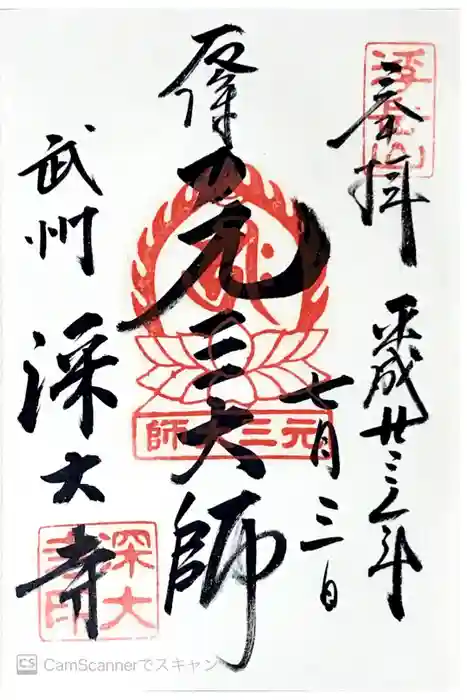 浮岳山
奉拝
平成廿三年
七月三日
元三大師
元三大師
武州
深大寺
深大寺印
CS CamScannerでスキャン